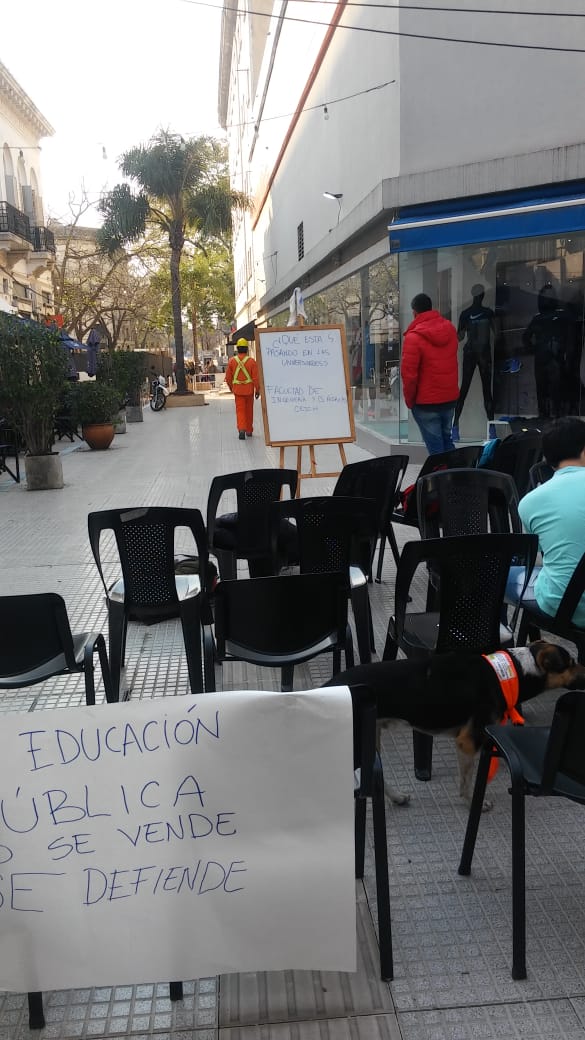 ¿QUE ESTA
PASANDO EN LAS
UNIVERSIDADES?
FACULTAD DE
INGENIERIA Y CS HIDRICAS
EDUCACIÓN
ÚBLICA
O SE VENDE
SE DEFIENDE